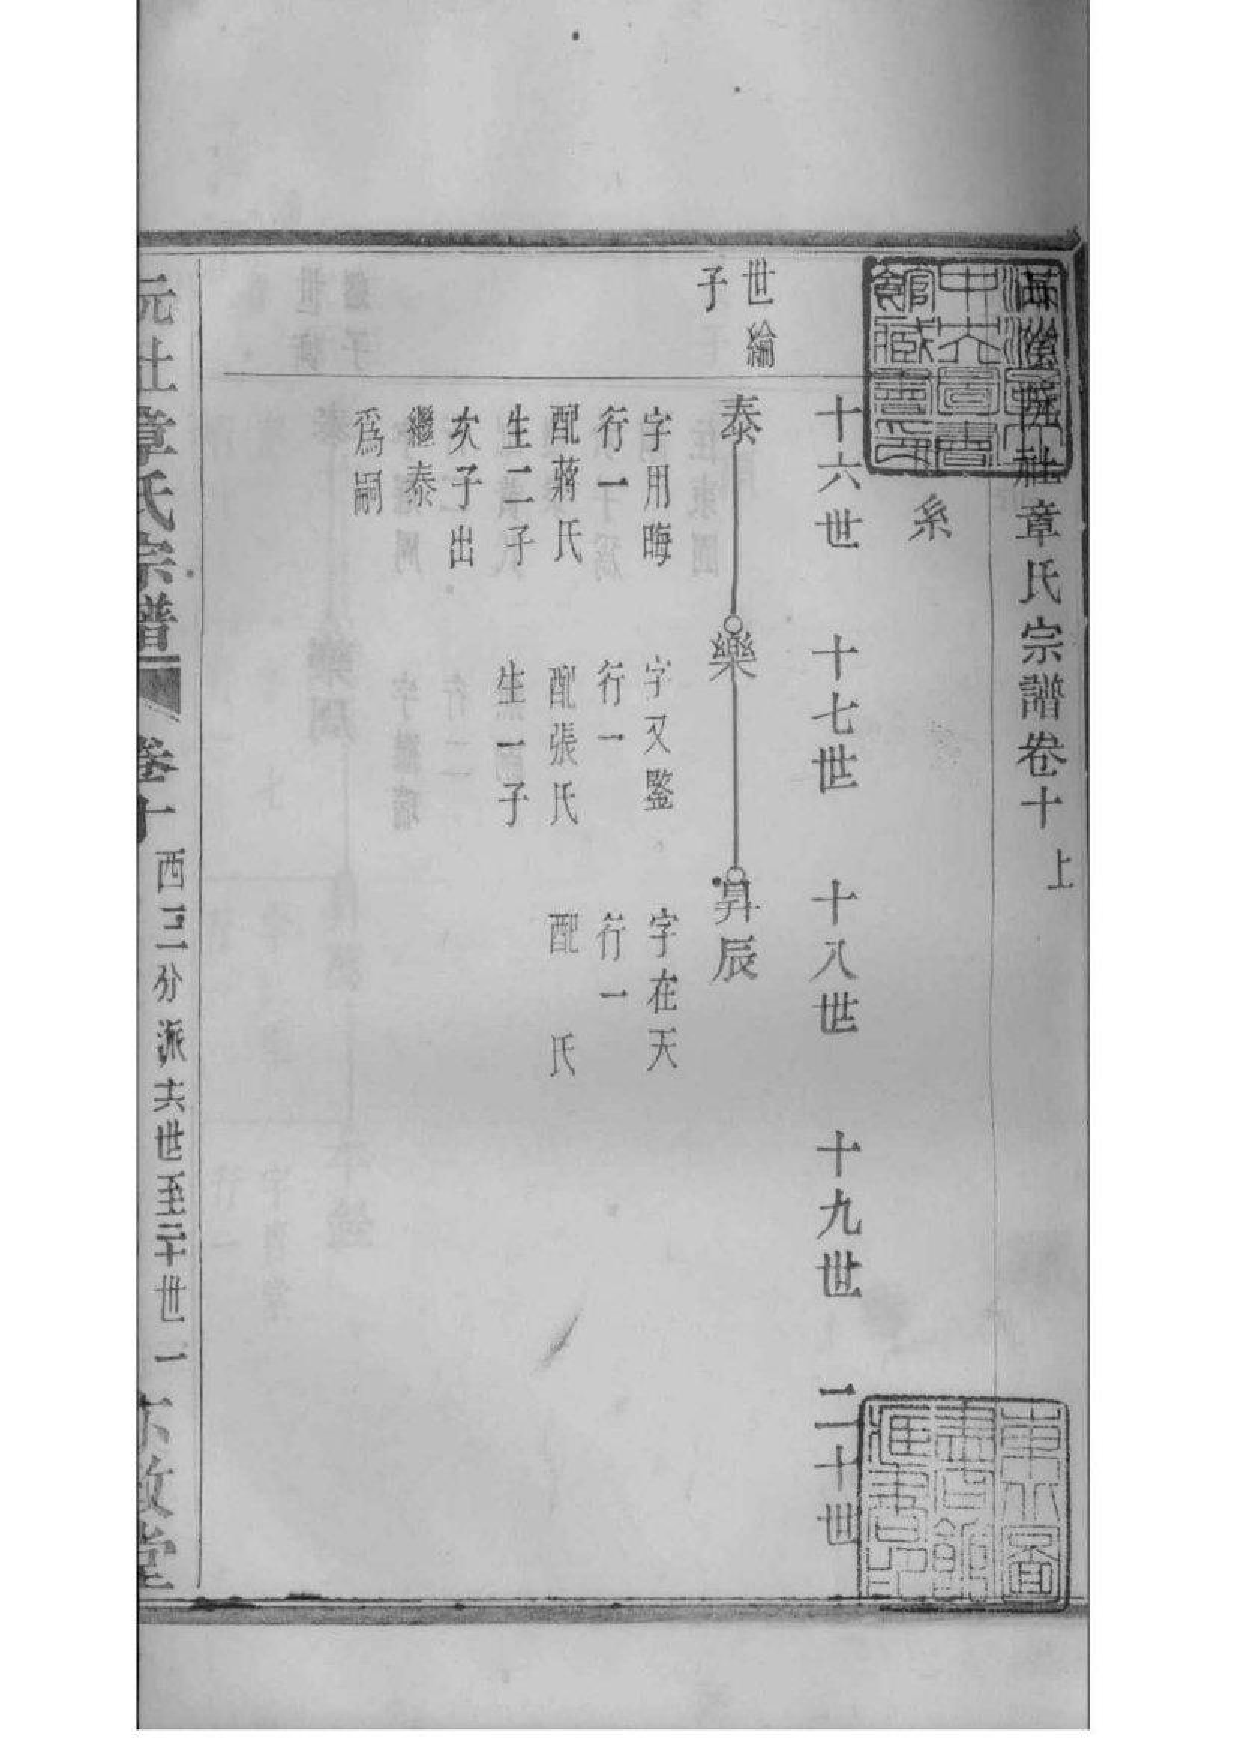 阮社章氏宗譜卷十上
系
十六世 十七世 十八世 十九世 二十世
世綸
子
泰 樂 昇辰
字用晦 字又鑒 字在天
行一 行一 行一
配蔣氏 配張氏 配 氏
生二子 生一子
次子出
繼泰
爲嗣
阮社章氏宗譜 卷十 西二分派共世至二十世 一